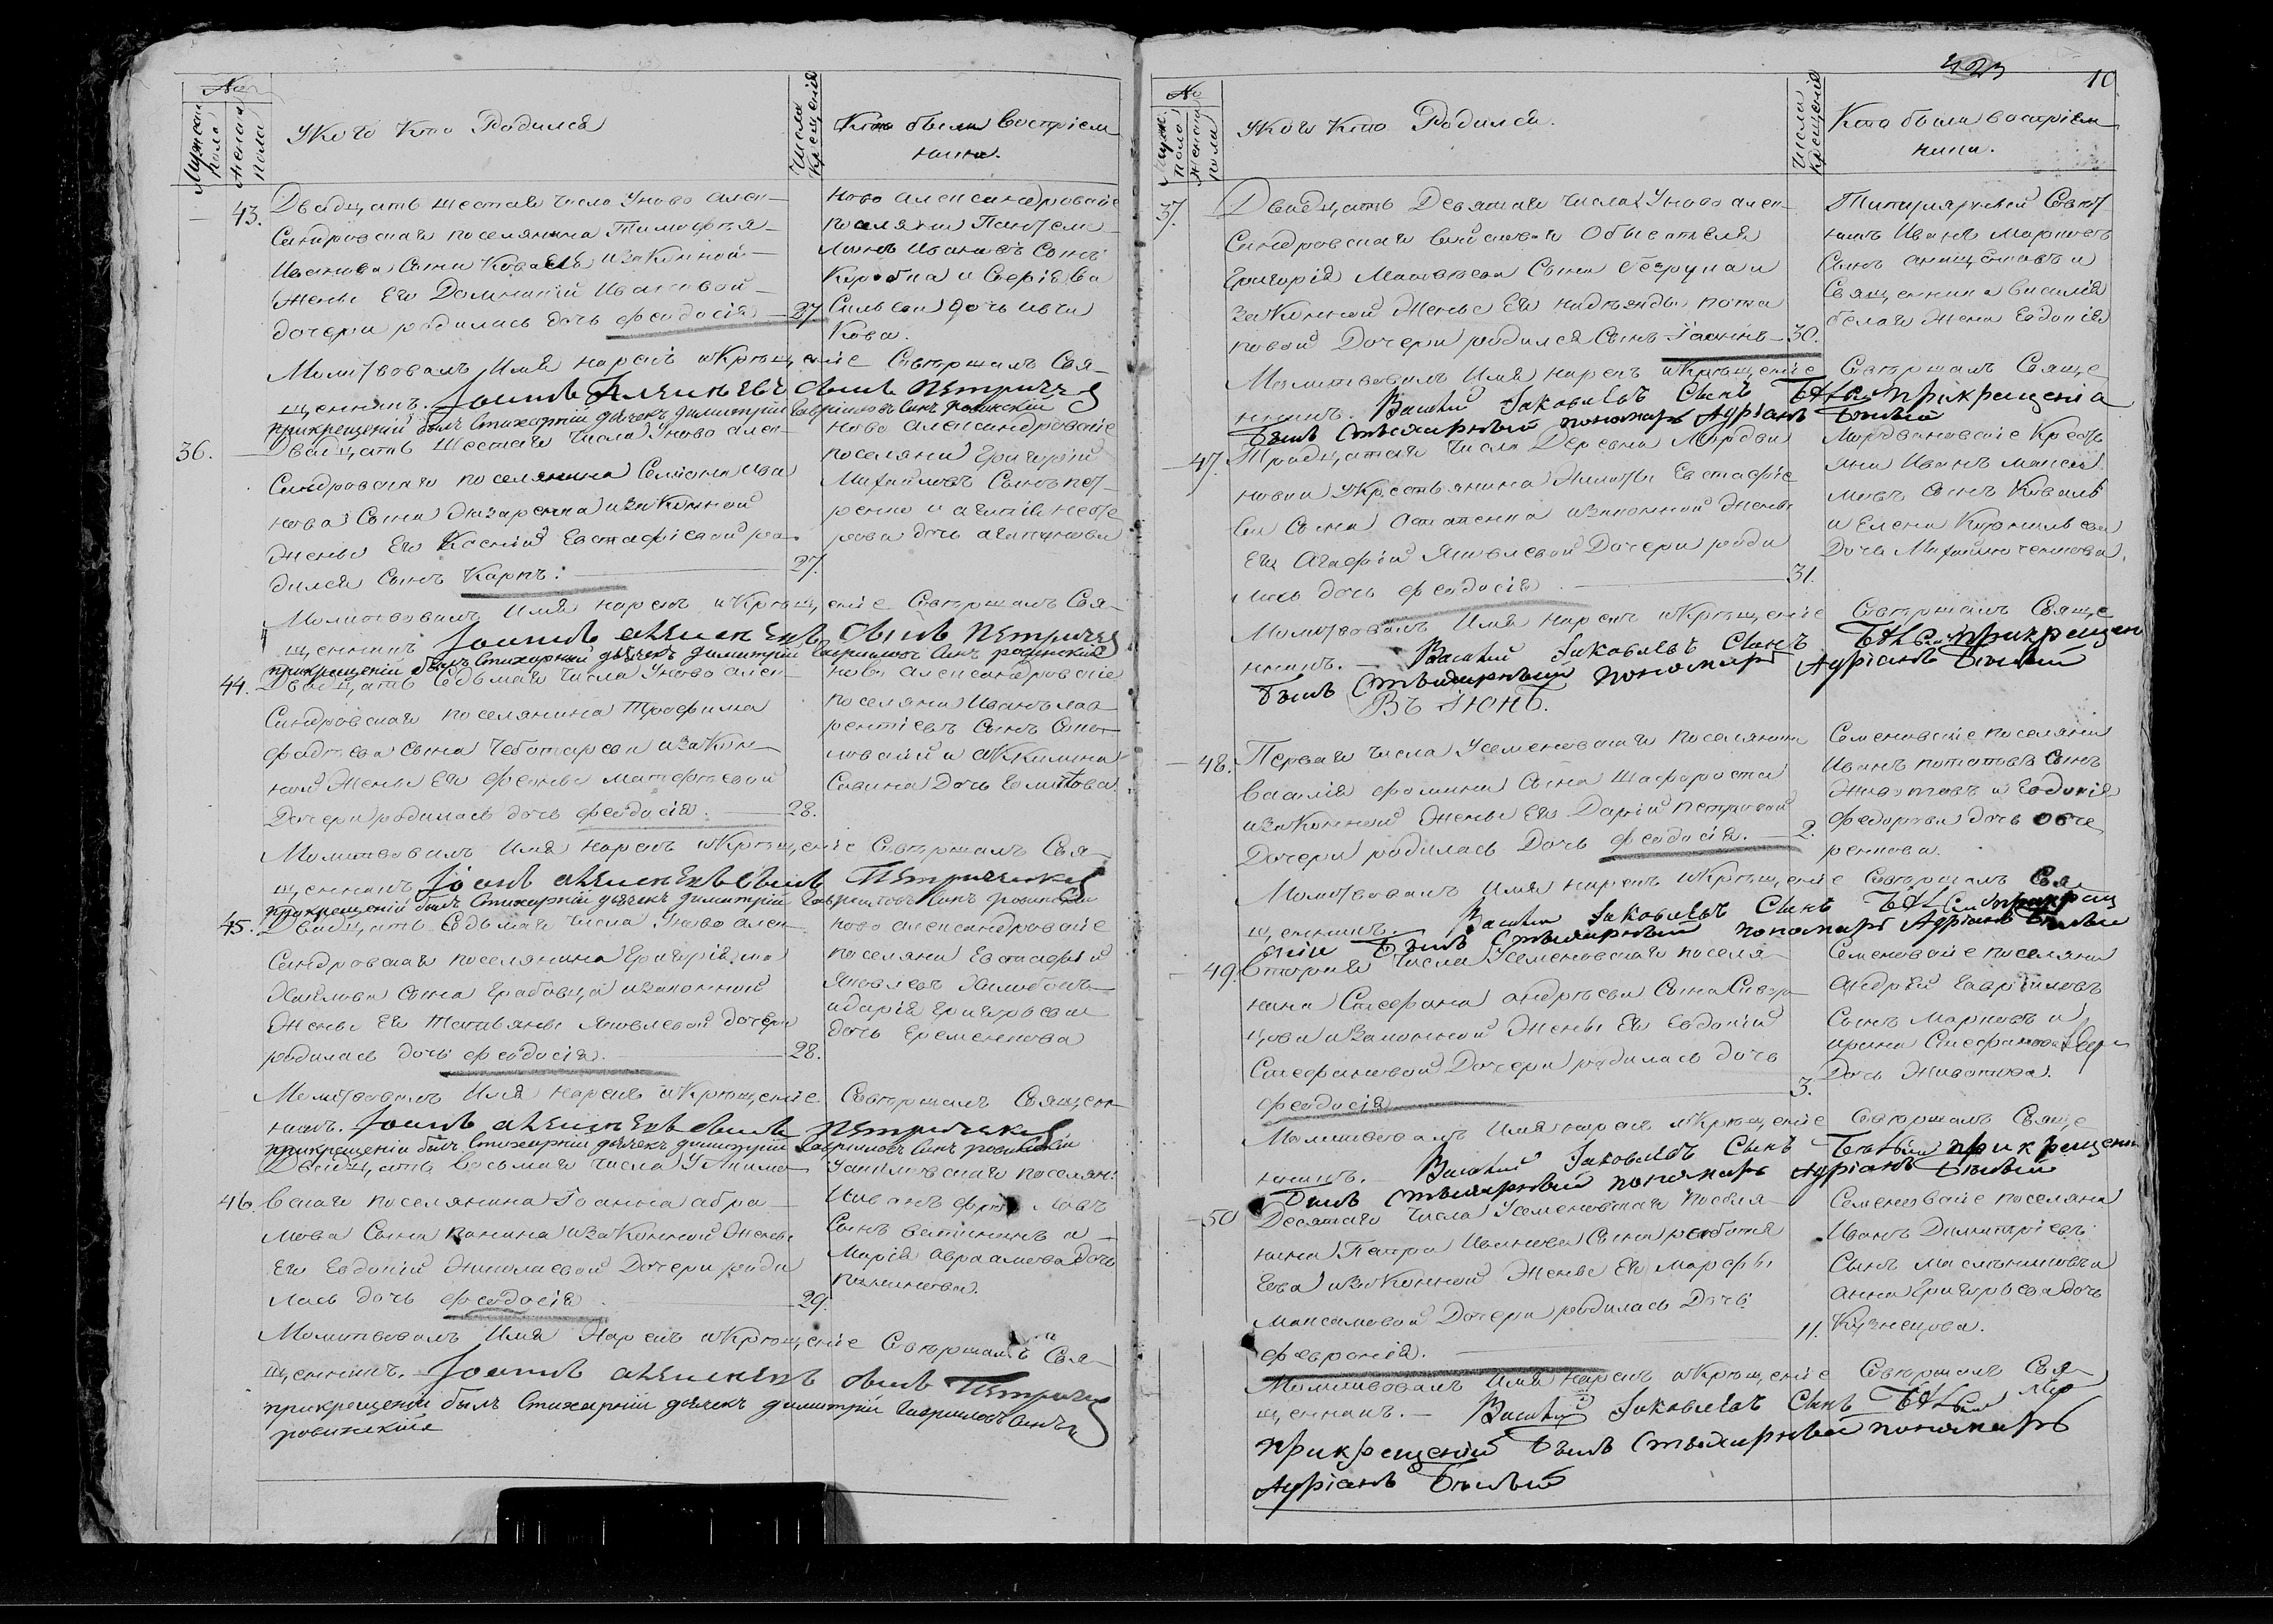 №
Мужеска пола
Женска пола
У Кого Кто Родился
Числа Крещенія
Кто были воспріем-
ники.
43. Двадцать шестаго числа Уново алек-
сандровскаго поселянина Тимофѣя
Иванова сына Коваля изаконной
жены его Домникіи Ивановой
дочери родилась дочь феодосія 27
ново александровскіе
поселяни Пантелей-
Ивановъ Сынъ
и Софія Ва
сильева дочь
кова.
Молитвовалъ Имя нарекъ иКрещеніе Совершалъ Свя-
щенникъ. Іоаннъ Алексѣевъ сынъ Петричен
прикрещеніи былъ Стихарній дьячекъ димитрій Гавриловъ синъ ровинскій
36. Двадцать Шестаго числа Уново алек-
сандровскаго поселянина Семіона Ива
нова Сына изаконной
жены его Ксеніи Евстафіевой ро
дился сынъ Карпъ. 27.
ново александровскіе
поселяни Григорій
Михайловъ Сынъ пет-
ренко и
рова дочь
Молитвовалъ Имя нарекъ иКрещеніе Совершалъ Свя-
щенникъ Іоаннъ алексѣевъ сынъ Петричен
прикрещеніи былъ Стихарній дьячекъ димитрій Гавриловъ синъ ровинскій
44. Двадцать Седьмаго числа Уново алек-
сандровскаго поселянина Трофима
фадѣева сына Чеботарева изакон-
ной жены его феклы матфѣевой
дочери родилась дочь феодосія. 28.
ново александровскіе
поселяни Иванъ лав
рентіевъ сынъ
и Акилина
Савина дочь
Молитвовалъ Имя нарекъ иКрещеніе Совершалъ Свя-
щенникъ Іоанъ алексѣевъ сынъ Петриченко
прикрещеніи былъ Стихарній дьячекъ димитрій Гавриловъ синъ ровинскій
45. Двадцать Седьмаго числа Уново алек-
сандровскаго поселянина Григорія ми
хайлова сына Грабовца изаконной
жены его татьяны Яковлевой дочери
родилась дочь феодосія. 28.
ново александровскіе
поселяни Евстафій
Яковлевъ
идарія Григорьева
дочь Еременкова
Молитвовалъ Имя нарекъ иКрещеніе Совершалъ Священ-
никъ. Іоаннъ алексѣевъ сынъ Петриченко
прикрещеніи былъ Стихарній дьячекъ димитрій Гавриловъ синъ ровинскій
46. Двадцать восьмаго числа У
вскаго поселянина Іоанна абра-
мова Сына панина изаконной жены
Его Евдокіи Николаевой Дочери роди
лась дочь феодосія. 29.
поселян.
Иванъ
Сынъ и
Марія авраамова дочь
Молитвовалъ Имя Нарекъ иКрещеніе Совершалъ Свя-
щенникъ. Іоаннъ алексѣевъ сынъ Петричен
прикрещеніи былъ Стихарній дьячекъ димитрій Гавриловъ синъ
ровинскій
10
№
Мужск. пола
Женска пола
У Кого Кто Родился.
Числа Крещенія
Кто были воспріем-
ники.
37. Двадцать Девятаго числа Уново алек-
сандровскаго Обывателя
Григорія Матвѣева Сына и
законной Жены Его надѣжды пота
повой Дочери родился Сынъ Іаоннъ 30.
Титулярный Совѣт
никъ Иванъ
Сынъ и
Священника василія
белаго жена Евдокія
Молитвовалъ Имя нарекъ иКрещеніе Совершалъ Свяще
нникъ. Василий Іаковлевъ Сынъ Бѣлый прикрещеніи
Былъ стыхарный пономарь Адріанъ Бѣлый
47. Тридцатаго Числа Деревни Мордви
новки УКрестьянина Никиты Евстафіе
ва Сына Остапенка изаконной Жены
Его Агафіи Яковлевой Дочери роди
лась дочь феодосія 31.
Мордвиновскіе Крестья
яни Иванъ макси
мовъ сынъ Коваль
и Елена Корнильева
Дочь
Молитвовалъ Имя нарекъ иКрещеніе Совершалъ Свяще
нникъ. Василий Іаковлевъ Сынъ Бѣлый прикрещен
Былъ Стыхарный пономарь Адріанъ Бѣлый
Въ Іюнѣ.
48. Перваго числа Усеменовскаго поселянина
Василія фомина Сына Шафороста
изаконной Жены Его Даріи петровой
Дочери родилась Дочь феодосія. 2.
Семеновскіе поселяни
Иванъ потаповъ Сынъ
Животовъ и Евдокія
федорова дочь
ренкова.
Молитвовалъ Имя нарекъ иКрещеніе Совершалъ Свя
щенникъ. Василий Іаковлевъ Сынъ Бѣлый прикрещ
еніи Былъ Стыхарный пономарь Адріанъ Бѣлый
49. Втораго числа Усеменовскаго поселя-
нина Стефана андрѣева Сына
цова изаконной Жены Его Евдокіи
Стефановой Дочери родилась дочь
феодосія 3.
Семеновскіе поселяни
Андрій Гавріиловъ
Сынъ Марковъ и
ирина Стефанова
Дочь Животова.
Молитвовалъ Имя нарекъ иКрещеніе Совершалъ Свяще
нникъ. Василий Іаковлевъ Сынъ Бѣлый прикрещении
Былъ Стыхарный пономарь Адріанъ Бѣлый
50 Десятаго числа Усеменовскаго поселя-
нина Петра Иванова Сына
ева изаконной Жены Его Марфы
Максимовой Дочери родилась Дочь
феврония. 11.
Семеновскіе поселяни
Иванъ Димитріевъ
Сынъ Масльниковъ и
анна Григорьева дочь
Кузнецова.
Молитвовалъ Имя нарекъ иКрещеніе Совершалъ Свя
щенникъ. Василий Іаковлевъ Сынъ Бѣлый
прикрещеніи Былъ Стыхарный пономарь
Адріанъ Бѣлый